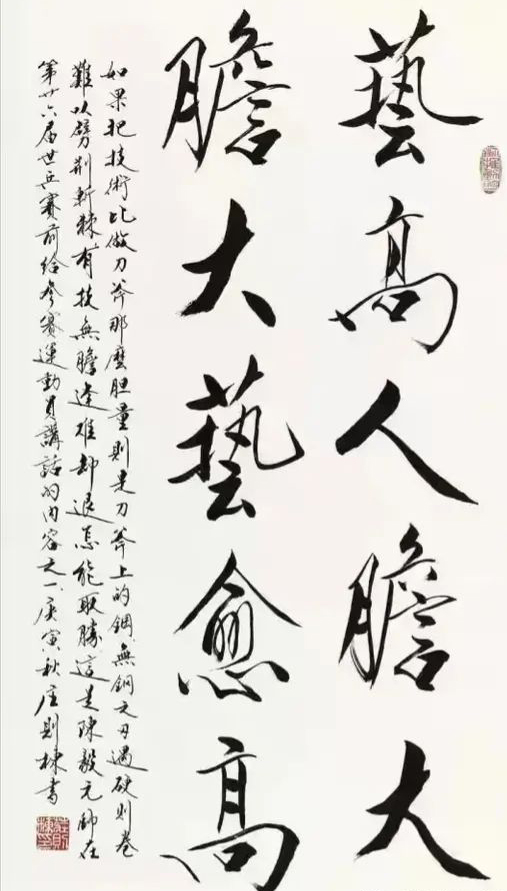 藝高人膽大
膽大藝愈高
如果把技術比做刀斧那麼胆量則是刀斧上的鋼無鋼之刃遇硬則卷
難以劈荆斬棘有技無膽逢难却退怎能取勝這是陳毅元帥在
第廿六届世乒賽前給参賽運動員講話的内容之一庚寅秋庄則棟書